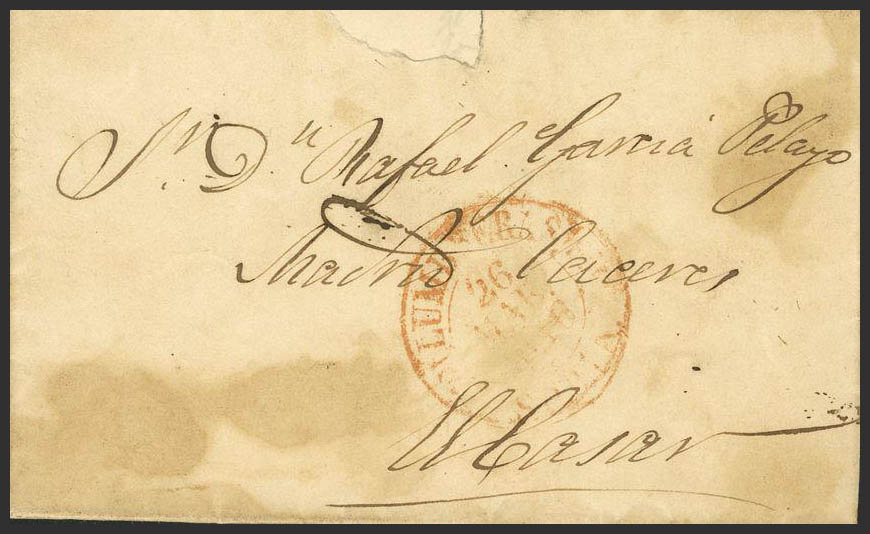 Sr. Dn. Rafael Garcia Pelayo
Madrid Caceres
El Casar
26